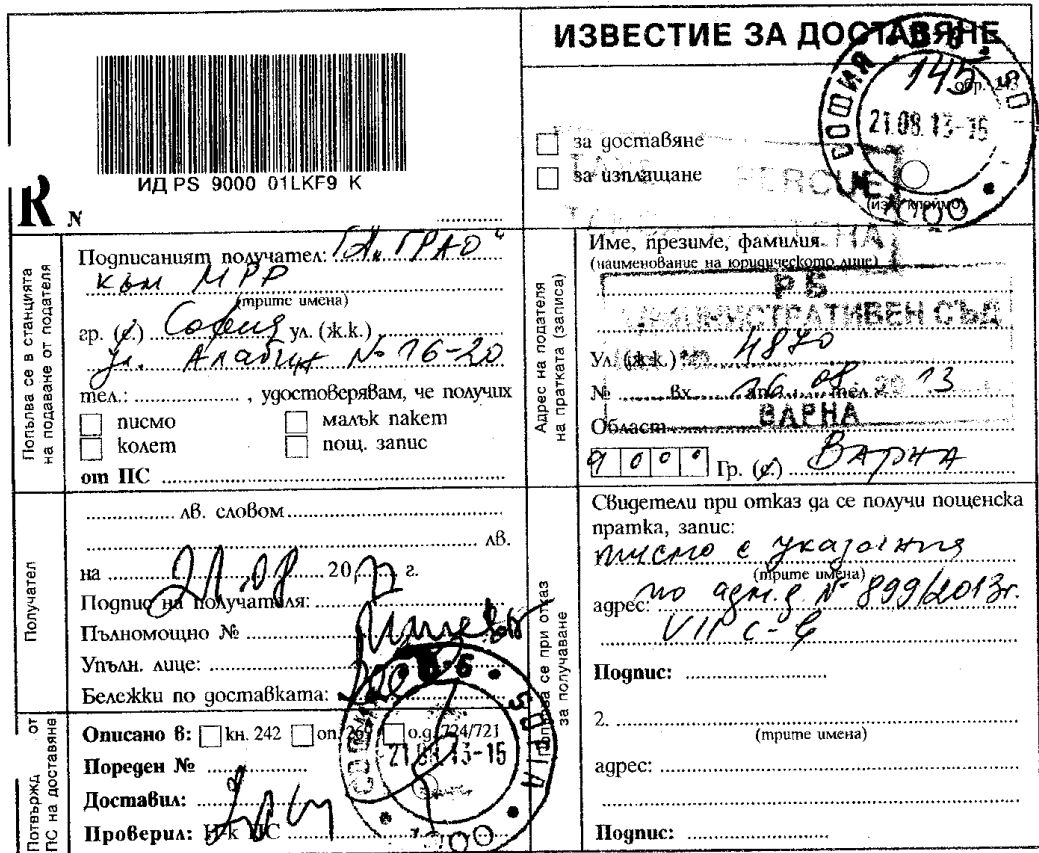 ИЗВЕСТИЕ ЗА ДОСТАВЯНЕ
145
обр. 243
СОФИЯ
21.08.13-15
за доставяне
за изплащане
ИД PS 9000 01LKF9 K
R N
Попълва се в станцията на подаване от подателя
Подписаният получател: ГД „ГРАО“
към МРР
(трите имена)
гр. (с.) София ул. (ж.к.)
ул. Алабин № 16-20
тел.: , удостоверявам, че получих
писмо
малък пакет
колет
пощ. запис
от ПС
Адрес на подателя на пратката (записа)
Име, презиме, фамилия
(наименование на юридическото лице)
РБ
АДМИНИСТРАТИВЕН СЪД
Ул. (ж.к.) 4870
№ вх. ап. тел. 16 08 2013
ВАРНА
Област
9000 Гр. (с.) ВАРНА
Получател
лв. словом
лв.
на 21.08 20 г.
Подпис на получателя:
Пълномощно №
Упълн. лице:
Бележки по доставката:
Попълва се при отказ за получаване
Свидетели при отказ да се получи пощенска
пратка, запис:
писмо с указания
(трите имена)
адрес: по адм.д. № 899/2013г.
VII с-в
Подпис:
2.
(трите имена)
адрес:
Подпис:
Потвържд. от ПС на доставяне
Описано в: кн. 242 оп. о.д. 724/721
21.08.13-15
Пореден №
Доставил:
Проверил: Н-к ПС